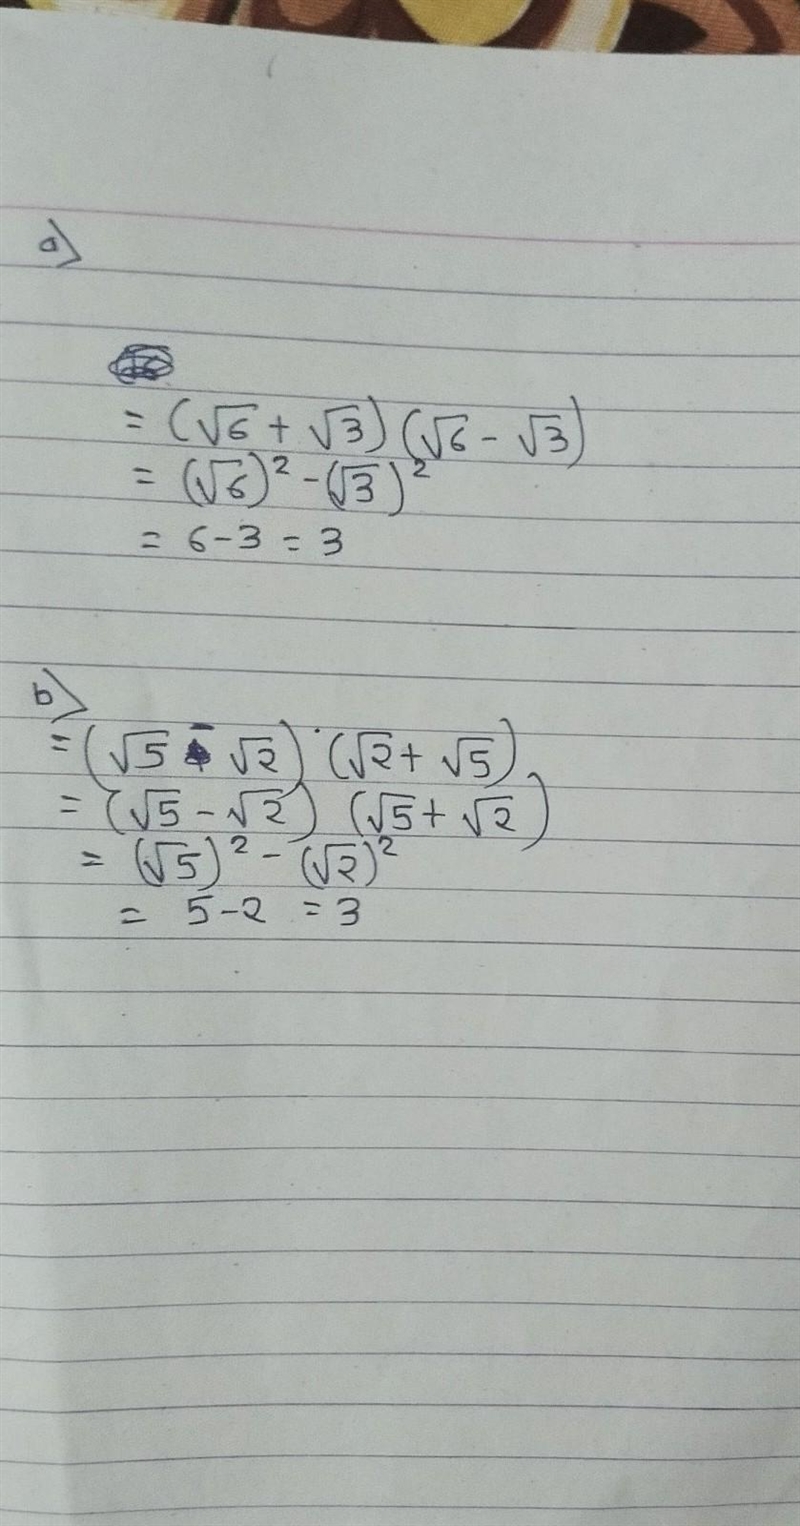 a)
= (√6 + √3) (√6 - √3)
= (√6)² - (√3)²
= 6-3 = 3
b)
= (√5 - √2) (√2 + √5)
= (√5 - √2) (√5 + √2)
= (√5)² - (√2)²
= 5-2 = 3